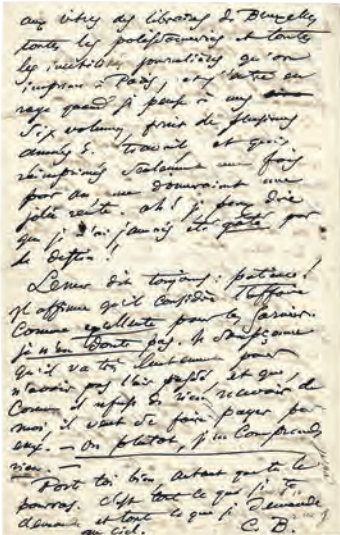 aux vitres des libraires de Bruxelles
toutes les polissonneries et toutes
les inutilités journalières qu'on
imprime à Paris, et j'entre en
rage quand je pense à mes
six volumes, fruit de plusieurs
années de travail, et qui,
réimprimés seulement une fois
par an me donneraient une
jolie rente. Ah! je peux dire
que je n'ai jamais été gâté par
le destin!
Lemer dit toujours: patience!
Il affirme qu'il considère l'affaire
comme excellente pour les Garnier.
je n'en doute pas. Je soupçonne
qu'il va très lentement pour
n'avoir pas l'air pressé, et que,
comme il refuse de rien recevoir de
moi, il veut se faire payer par
eux. – Ou plutôt, je ne comprends
rien. –
Porte toi bien, autant que tu le
pourras. C'est tout ce que je te
demande et tout ce que je demande
au ciel. C. B.